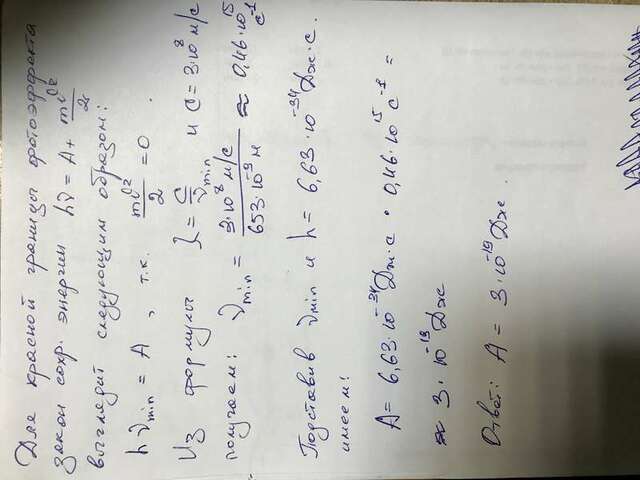 Для красной границы фотоэффекта
закон сохр. энергии hν = A + mv²/2
выглядит следующим образом:
hνmin = A, т.к. mv²/2 = 0.
Из формулы λ = C/νmin и C = 3·10⁸ м/с
получаем: νmin = 3·10⁸ м/с / 653·10⁻⁹ м ≈ 0,46·10¹⁵ с⁻¹
Подставив νmin и h = 6,63·10⁻³⁴ Дж·с.
имеем:
A = 6,63·10⁻³⁴ Дж·с · 0,46·10¹⁵ с⁻¹ =
≈ 3·10⁻¹⁹ Дж
Ответ: A = 3·10⁻¹⁹ Дж.